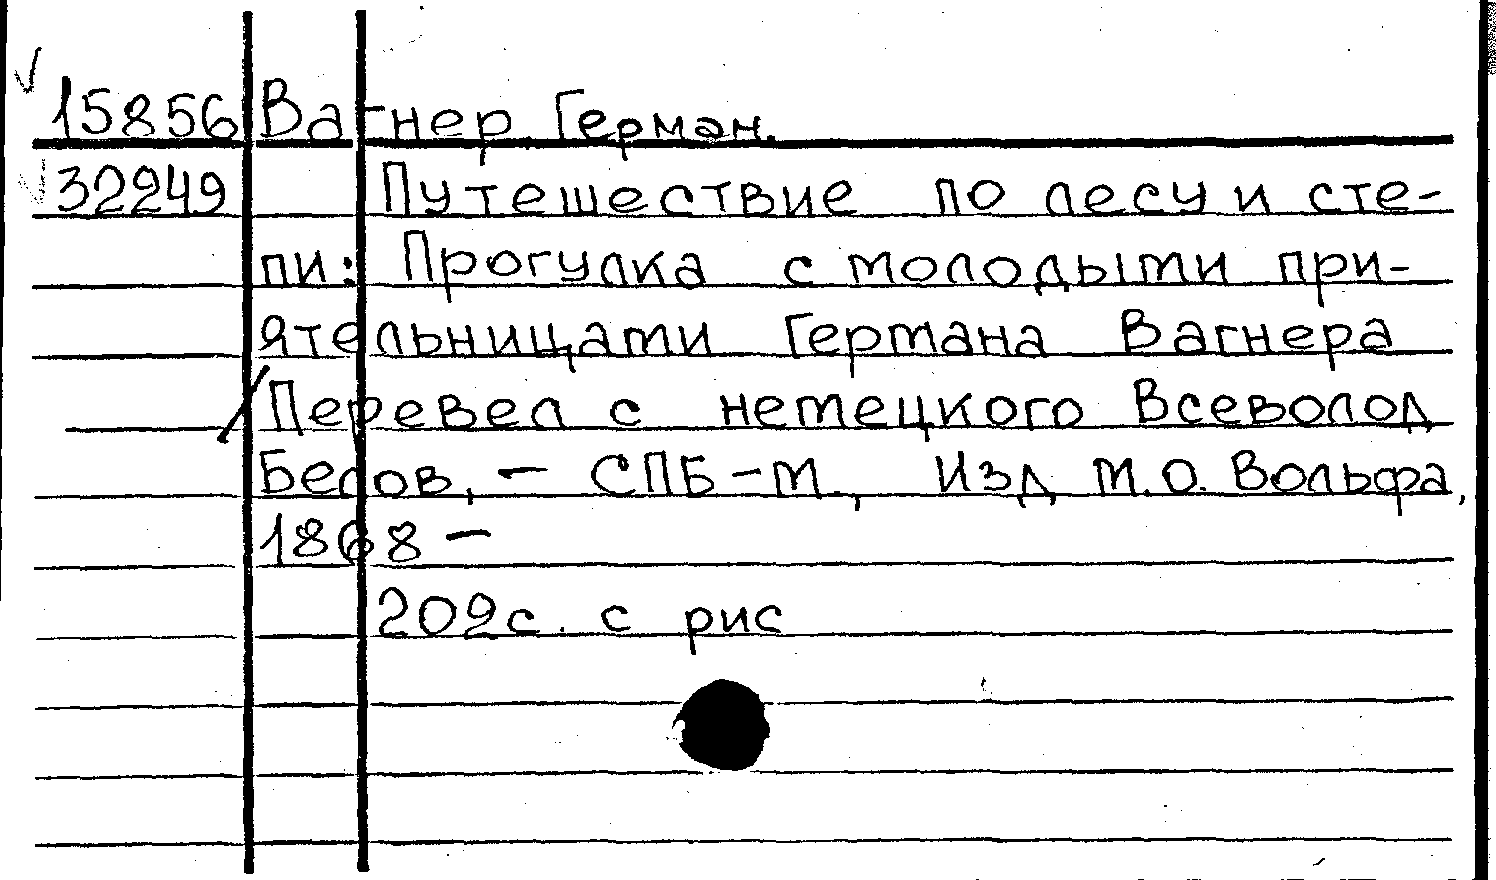 15856 Вагнер Герман.
32249 Путешествие по лесу и сте-
пи: Прогулка с молодыми при-
ятельницами Германа Вагнера
/Перевел с немецкого Всеволод
Бесов, – СПБ – М., Изд М.О. Вольфа,
1868 –
202с. с рис